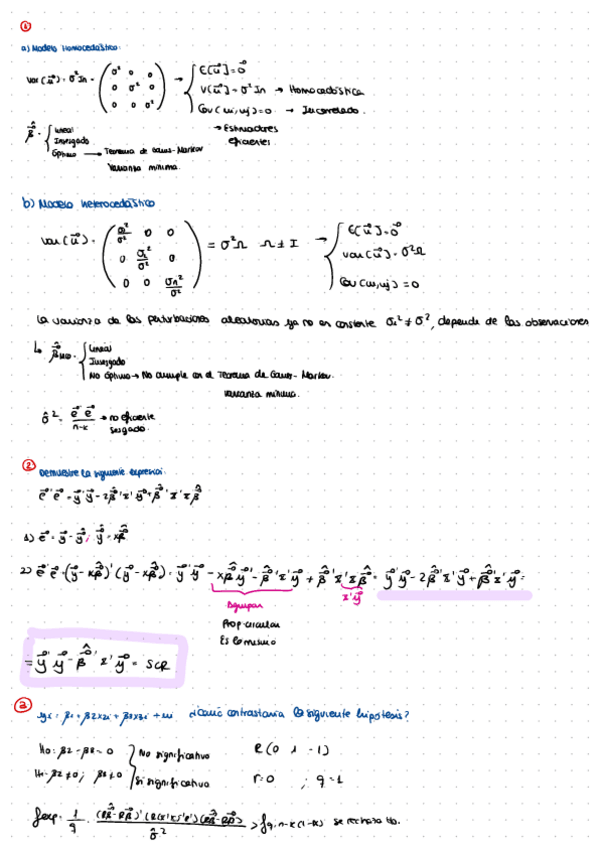 1
a) Modelo Homocedástico:
var(u⃗) = σ² In = ( σ² 0 0 / 0 σ² 0 / 0 0 σ² ) → { E[u⃗] = 0⃗
V[u⃗] = σ² In → Homocedástica
Cov(ui, uj) = 0 → Incorrelado.
→ Estimadores eficientes.
β̂ = { Lineal
Insesgado
Óptimo → Teorema de Gauss-Markov
Varianza mínima.
b) Modelo Heterocedástico
var(u⃗) = ( σ²/σ² 0 0 / 0 σi²/σ² 0 / 0 0 σn²/σ² ) = σ²Ω Ω ≠ I → { E[u⃗] = 0⃗
var[u⃗] = σ²Ω
Cov(ui, uj) = 0
La varianza de las perturbaciones aleatorias ya no es constante σi² ≠ σ², depende de las observaciones
↳ β̂ = { Lineal
Insesgado
No óptimo → No cumple con el Teorema de Gauss-Markov.
varianza mínima.
σ̂² = e⃗'e⃗ / n-k → no eficiente
sesgado.
2
Demuestre la siguiente expresión:
e⃗'e⃗ = y⃗'y⃗ - 2β̂'x'y⃗ + β̂'x'xβ̂
1) e⃗ = y⃗ - ŷ ; ŷ = xβ̂
2) e⃗'e⃗ = (y⃗ - xβ̂)'(y⃗ - xβ̂) = y⃗'y⃗ - xβ̂y⃗' - β̂'x'y⃗ + β̂'x'xβ̂ = y⃗'y⃗ - 2β̂'x'y⃗ + β̂'x'y⃗ =
x'y⃗
Agrupar
Prop circular
Es lo mismo
= y⃗'y⃗ - β̂'x'y⃗ = SCR
3
yi = β1 + β2x2i + β3x3i + ui ¿Cómo contrastaría la siguiente hipótesis?
H0: β2 - β3 = 0 } No significativo R(0 1 -1)
H1: β2 ≠ 0; β3 ≠ 0 } Si significativo r = 0 ; q = 1
fexp = 1/q · (Rβ̂ - Rβ)'(R(x'x)⁻¹R')(Rβ̂ - Rβ) / σ̂² > fq, n-k (1-α) se rechaza H0.